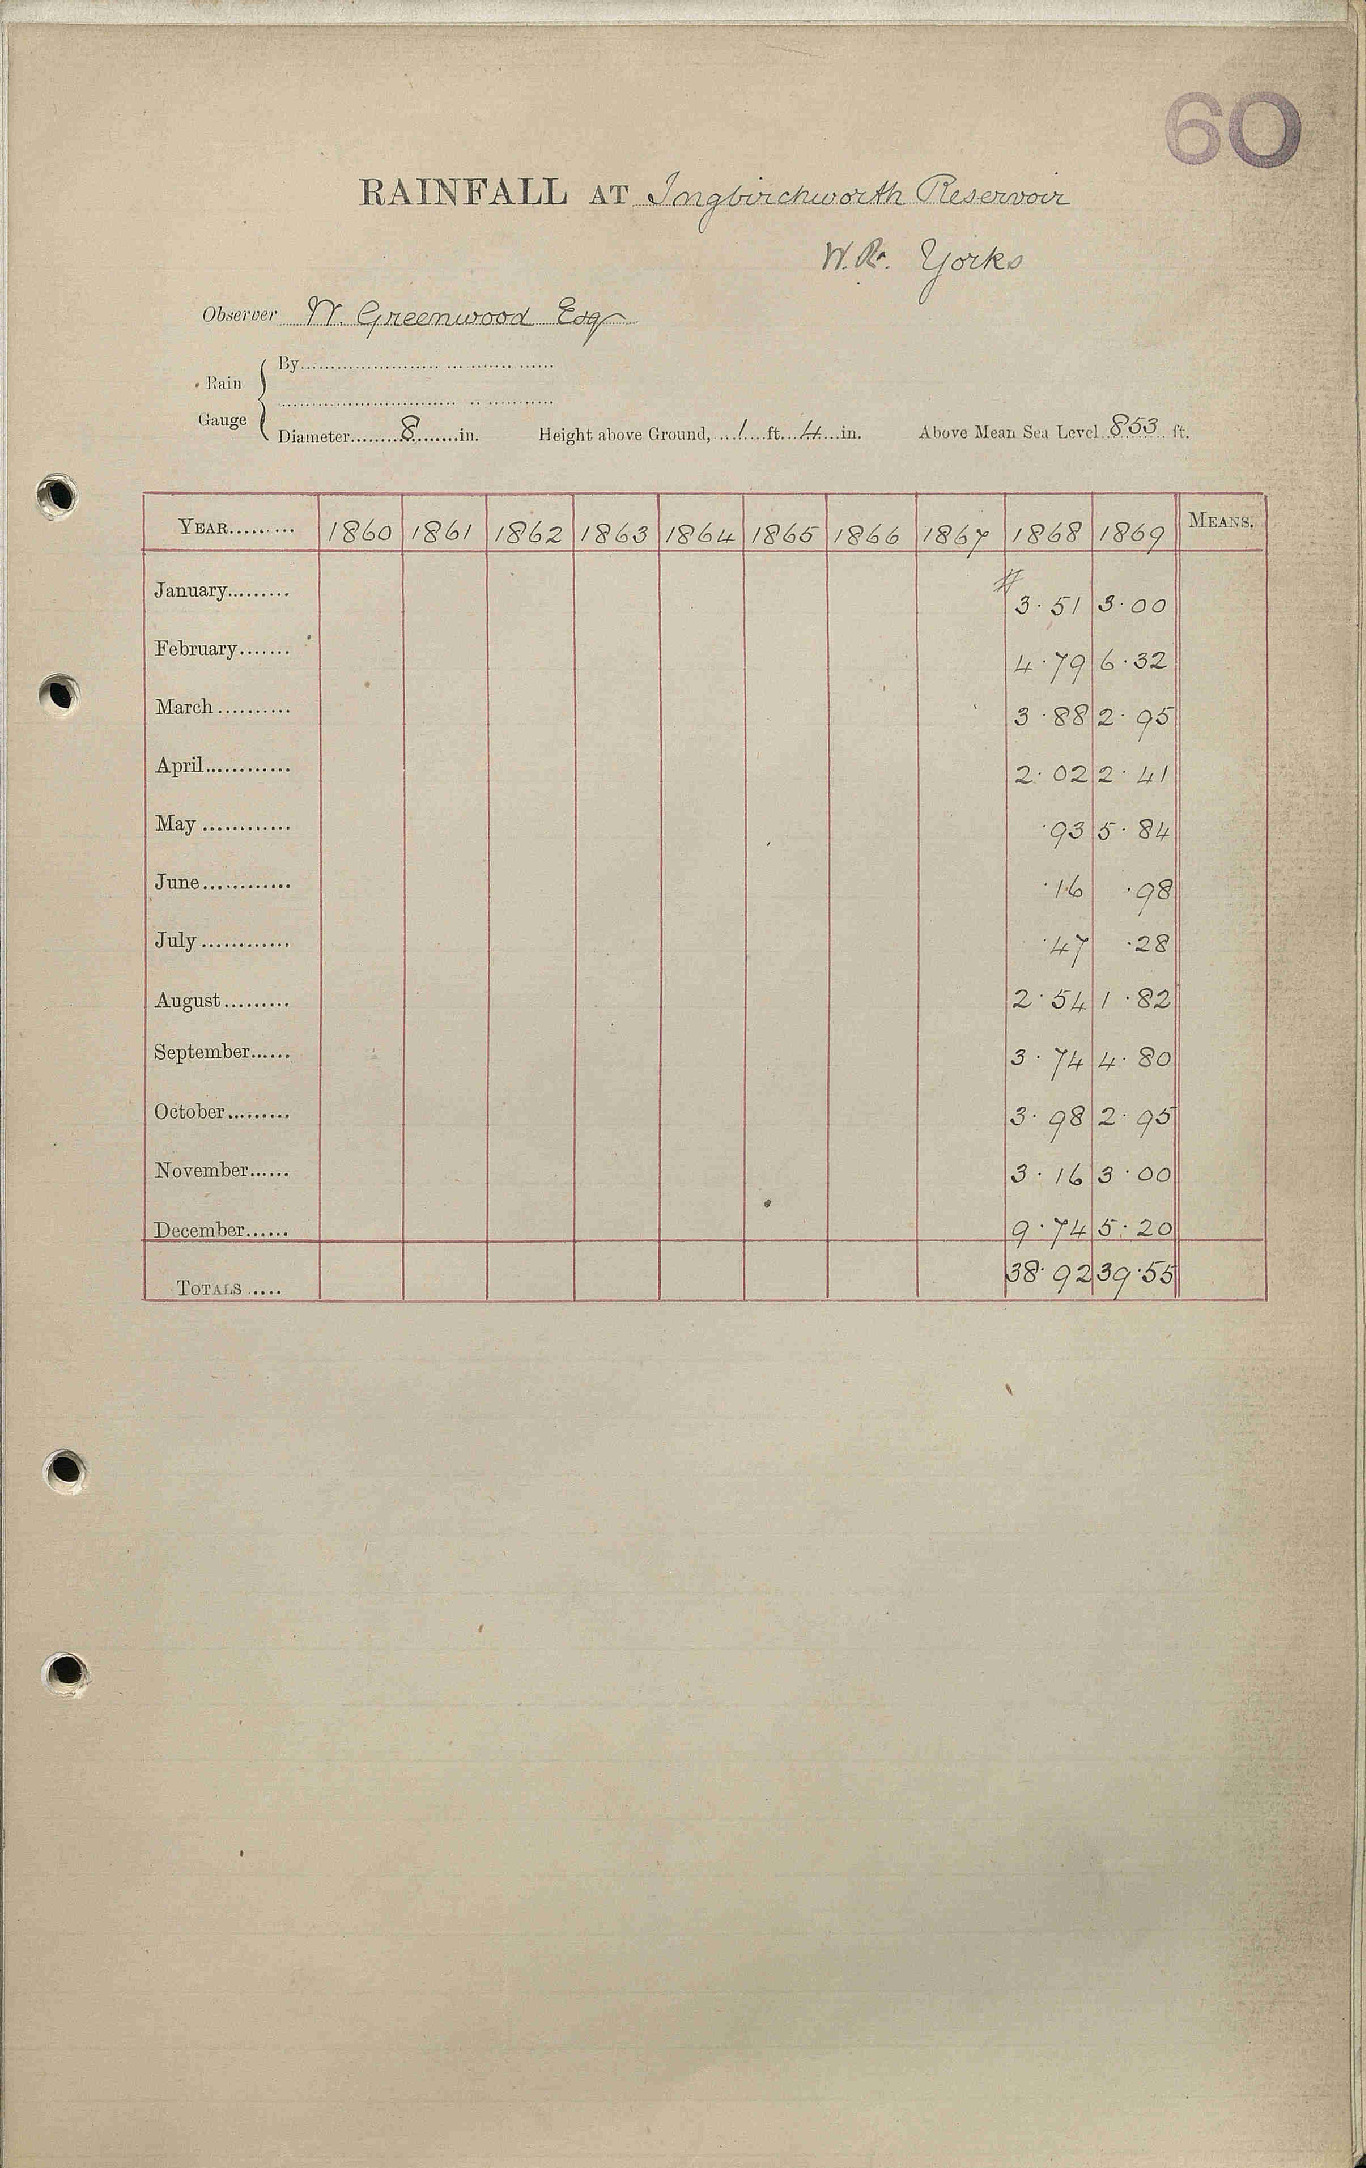 60
RAINFALL AT Ingbirchworth Reservoir
W.R. Yorks
Observer W. Greenwood Esq
Rain Gauge { By
Diameter 8 in. Height above Ground, 1 ft. 4 in. Above Mean Sea Level 853 ft.
YEAR 1860 1861 1862 1863 1864 1865 1866 1867 1868 1869 MEANS.
January # 3.51 3.00
February 4.79 6.32
March 3.88 2.95
April 2.02 2.41
May .93 5.84
June .16 .98
July .47 .28
August 2.54 1.82
September 3.74 4.80
October 3.98 2.95
November 3.16 3.00
December 9.74 5.20
TOTALS 38.92 39.55